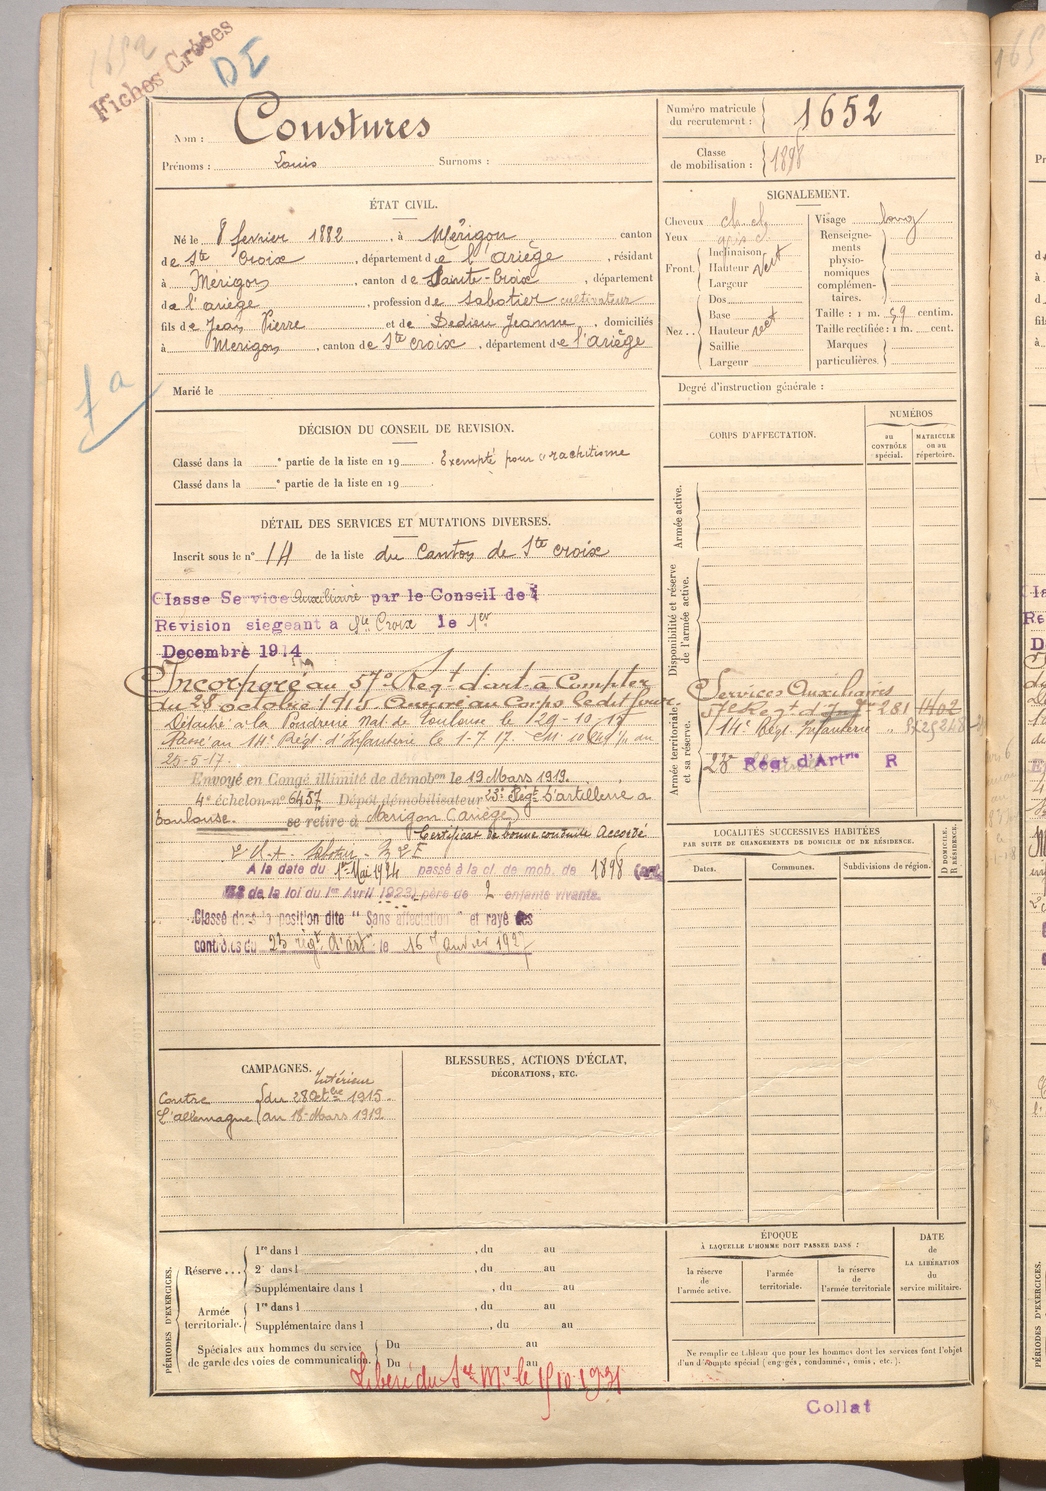 1652
Fiches Créées
DI
Nom : Coustures
Prénoms : Louis Surnoms :
Numéro matricule du recrutement : 1652
Classe de mobilisation : 1898
ÉTAT CIVIL.
Né le 8 février 1882, à Mérigon canton
de Ste Croix, département de l'ariège, résidant
à Mérigon, canton de Sainte-Croix, département
de l'ariège, profession de sabotier cultivateur
fils de Jean Pierre et de Dedieu Jeanne, domiciliés
à Merigon, canton de Ste Croix, département de l'ariège
Marié le
SIGNALEMENT.
Cheveux ch. ch.
Yeux gris
Front. Inclinaison
Hauteur vert
Largeur
Nez.. Dos
Base
Hauteur vert
Saillie
Largeur
Visage long
Renseignements physionomiques complémentaires.
Taille : 1 m. 59 centim.
Taille rectifiée : 1 m. cent.
Marques particulières.
Degré d'instruction générale :
1a
DÉCISION DU CONSEIL DE REVISION.
Classé dans la e partie de la liste en 19 . Exempté pour rachitisme
Classé dans la e partie de la liste en 19 .
DÉTAIL DES SERVICES ET MUTATIONS DIVERSES.
Inscrit sous le n° 14 de la liste du Canton de Ste croix
Classe Service Auxiliaire par le Conseil de
Revision siegeant a Ste Croix le 1er
Decembre 1914
Incorporé au 57e Regt d'art. à Compter
du 28 octobre 1915. Arrivé au Corps le dit jour.
Détaché à la Poudrerie Nat de Toulouse le
Passé au 14e Régt d'Infanterie le 1-7-17. du
25-5-17.
Envoyé en Congé illimité de démobon le 19 Mars 1919.
4e échelon n° 6457 Dépôt démobilisateur 23e Régt d'artillerie a
Toulouse. se retire à Merigon (ariège)
Certificat de bonne conduite Accordé
A la date du 1er Mai 1924 passé à la cl. de mob. de 1898 (art.
de la loi du 1er Avril 1923) père de 2 enfants vivants.
Classé dans la position dite "Sans affectation" et rayé des
contrôles du 23 régt d'art le 16 Janvier 1927
CORPS D'AFFECTATION.
NUMÉROS
au CONTRÔLE spécial.
MATRICULE ou au répertoire.
Armée active.
Disponibilité et réserve de l'armée active.
Armée territoriale et sa réserve.
Services Auxiliaires
57e Regt d' 281 1402
14e Régt Infanterie "
23e Régt d'Artrie R
LOCALITÉS SUCCESSIVES HABITÉES
PAR SUITE DE CHANGEMENTS DE DOMICILE OU DE RÉSIDENCE.
Dates. Communes. Subdivisions de région.
D DOMICILE. R RÉSIDENCE.
CAMPAGNES.
Intérieur
Contre du 28 Octbre 1915
L'allemagne au 18 Mars 1919
BLESSURES, ACTIONS D'ÉCLAT,
DÉCORATIONS, ETC.
PÉRIODES D'EXERCICES.
Réserve... 1re dans l , du au
2e dans l , du au
Supplémentaire dans l , du au
Armée territoriale. 1re dans l , du au
Supplémentaire dans l , du au
Spéciales aux hommes du service de garde des voies de communication. Du au
Du au
Libéré du Sce Mre le 15 10 1931
ÉPOQUE
À LAQUELLE L'HOMME DOIT PASSER DANS :
la réserve de l'armée active.
l'armée territoriale.
la réserve de l'armée territoriale
DATE de LA LIBÉRATION du service militaire.
Ne remplir ce tableau que pour les hommes dont les services font l'objet
d'un compte spécial (engagés, condamnés, omis, etc.).
Collat